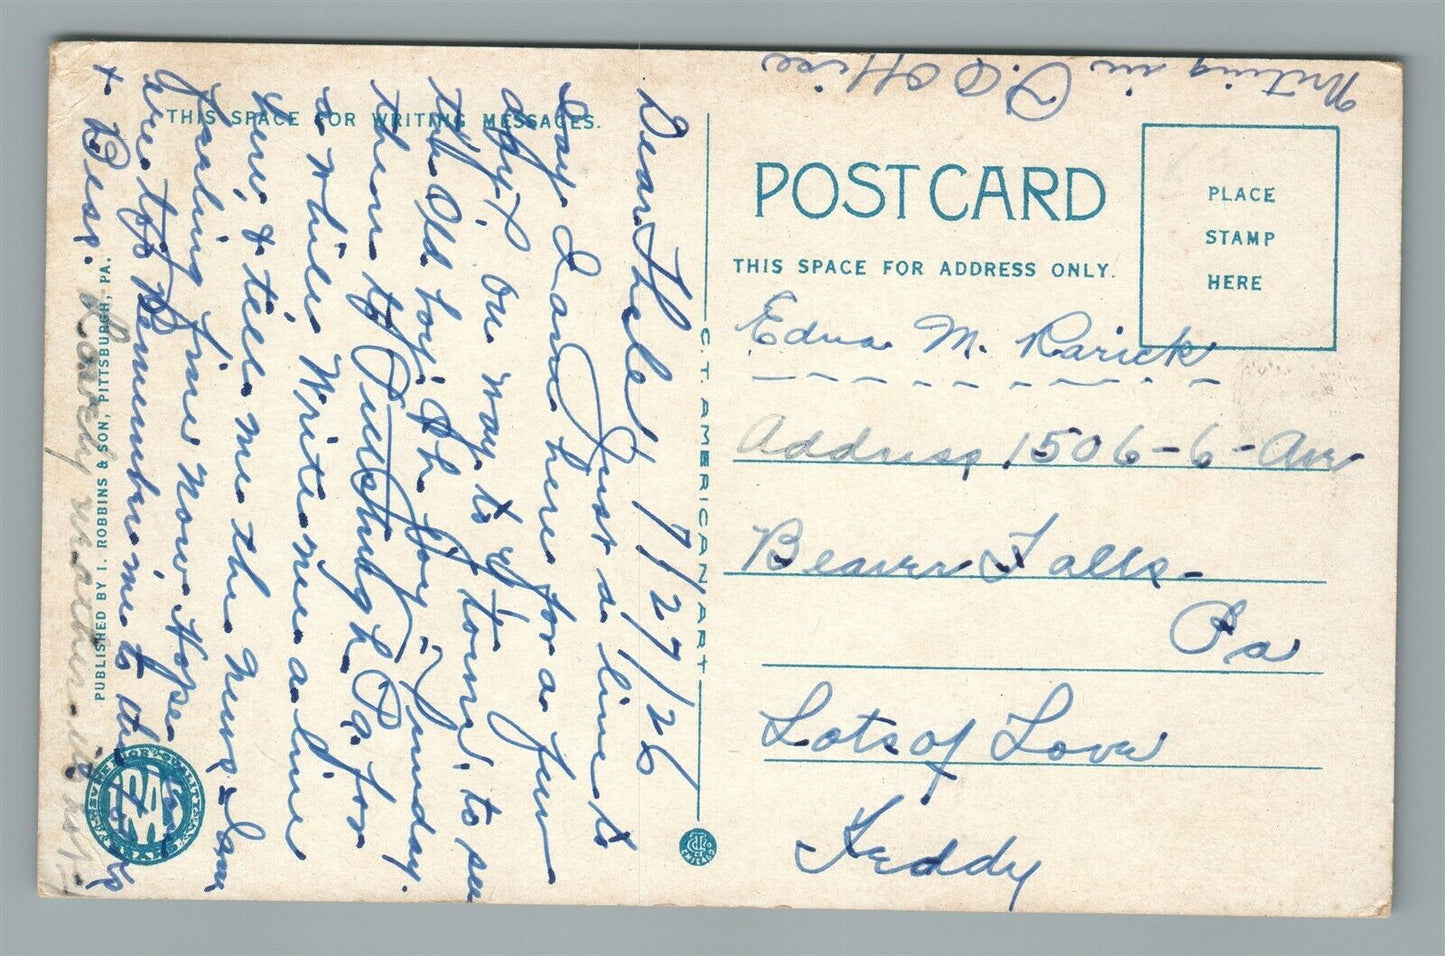 Writing in P.O Office
THIS SPACE FOR WRITING MESSAGES.
Dear Thelel 7/27/26
Just a line to
Say I am here for a few
days. On way to y'town, to see
the Old boy. Left Sunday.
then to Pittsburgh Pa. for
a while Write me a line
here, & tell me the news I am
feeling fine now. Hope you
are to. Remember me to the folks
+ Bess.
Lovely weather
PUBLISHED BY I. ROBBINS & SON, PITTSBURGH, PA.
C.T. AMERICAN ART
CHICAGO
POST CARD
THIS SPACE FOR ADDRESS ONLY.
PLACE
STAMP
HERE
Edna M. Rarick
Address, 1506-6-Ave
Beaver Falls-
Pa
Lots of Love
Teddy